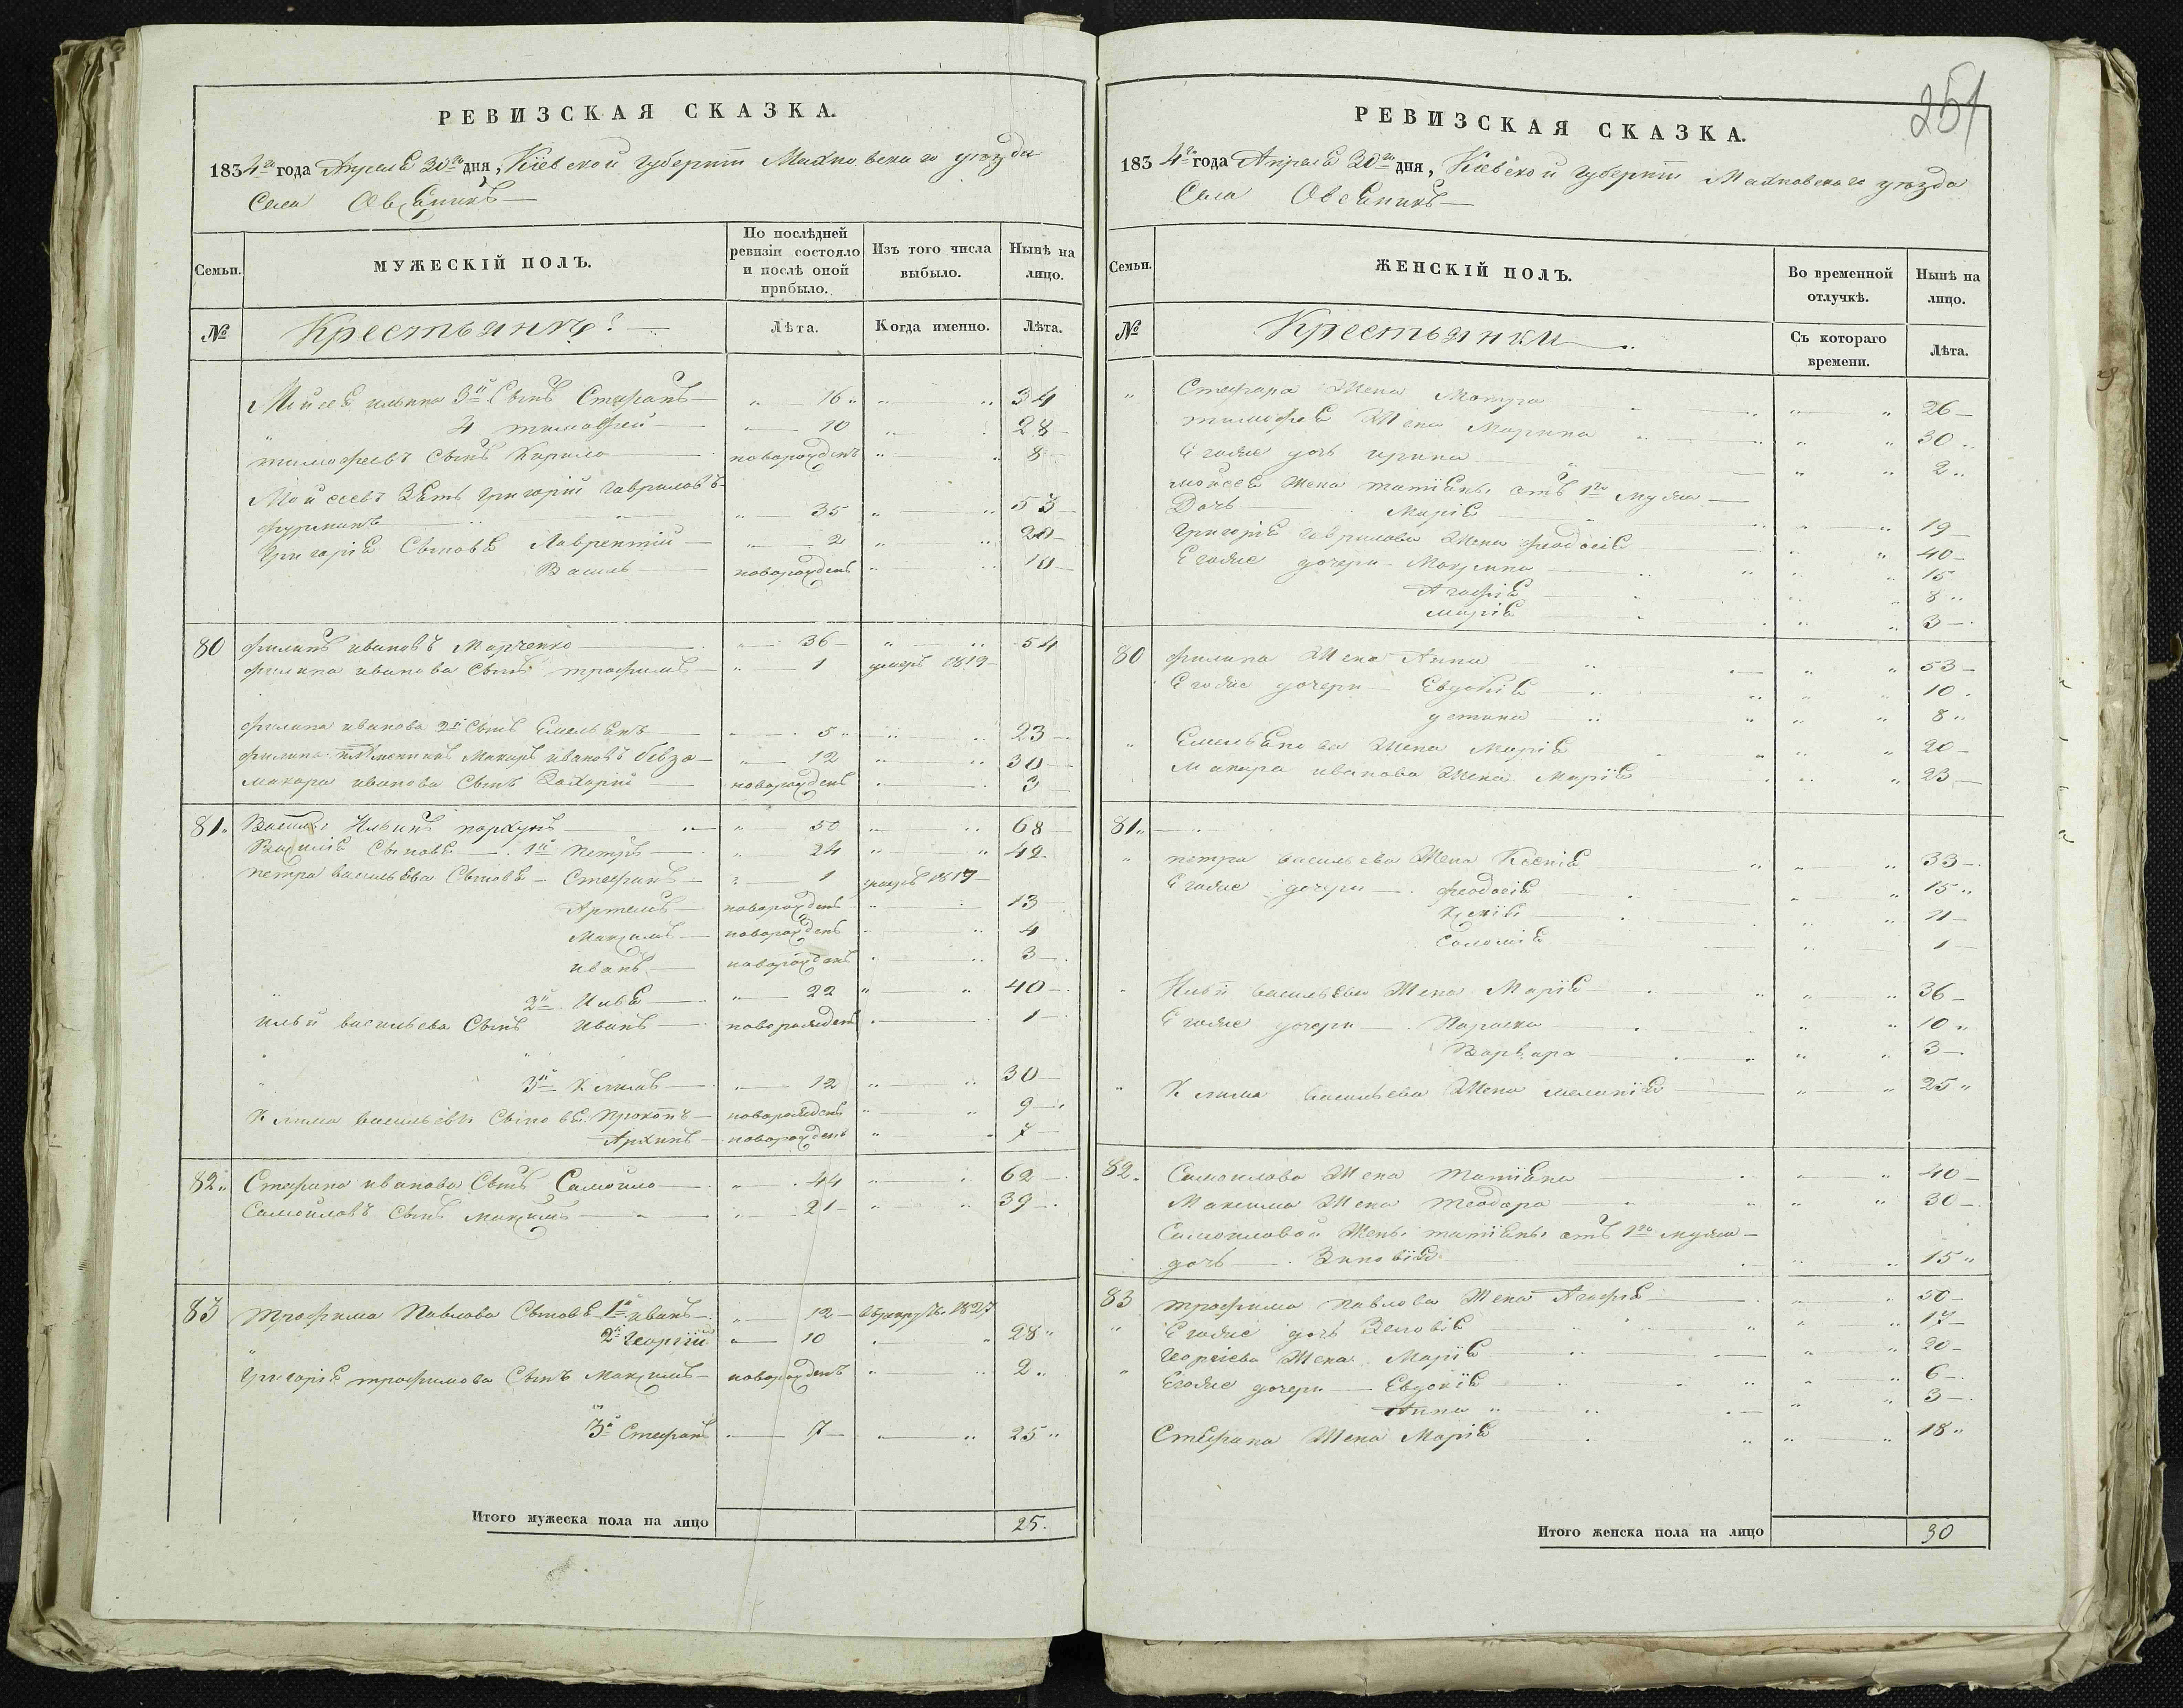 РЕВИЗСКАЯ СКАЗКА.
1834го года Апреля 30го дня, Кіевской губерніи Махновскаго уѣзда
Села Овсяникъ
Семьи.
МУЖЕСКІЙ ПОЛЪ.
По послѣдней ревизіи состояло и послѣ оной прибыло.
Изъ того числа выбыло.
Нынѣ на лицо.
№
Крестьянъ:
Лѣта.
Когда именно.
Лѣта.
Мойсея ильина 3й Сынъ Стефанъ 16 34
4 тимофей 10 28
тимофеевъ Сынъ Кирило новорожденъ 8
Мойсеевъ Зять Григорій гавриловъ
фурманъ 35 53
Григорія Сыновья Лаврентій 2 20
Василь новорожденъ 10
80 филипъ ивановъ Марченко 36 54
филипа иванова Сынъ трофимъ 1 умеръ 1819
филипа иванова 2й Сынъ Емельянъ 5 23
филипа племеникъ Макаръ ивановъ 12 30
макара иванова Сынъ Захарій новорожденъ 3
81 Василь Ильинъ пархунъ 50 68
Василія Сыновья 1й Петръ 24 42
петра васильева Сыновья Стефанъ 1 умеръ 1819
Артемъ новорожденъ 13
Максимъ новорожденъ 4
иванъ новорожденъ 3
2й Илья 22 40
ильи васильева Сынъ Иванъ новорожденъ 1
3й Климъ 12 30
Клима васильева Сыновья Прокопъ новорожденъ 9
Архипъ новорожденъ 7
82 Стефана иванова Сынъ Самойло 44 62
Самойловъ Сынъ максимъ 21 39
83 трофима Павлова Сыновья 1й иванъ 12 врекруты 1827
2й Георгій 10 28
Григорія трофимова Сынъ Максимъ новорожденъ 2
3й Стефанъ 7 25
Итого мужеска пола на лицо 25.
251
РЕВИЗСКАЯ СКАЗКА.
1834го года Апреля 30го дня, Кіевской губерніи Махновскаго уѣзда
Села Овсяникъ
Семьи.
ЖЕНСКІЙ ПОЛЪ.
Во временной отлучкѣ.
Нынѣ на лицо.
№
Крестьянки
Съ котораго времени.
Лѣта.
Стефана Жена Мотра 26
тимофея Жена Марина 30
Егоже дочь ирина 2
мойсея Жена татіяны отъ 1го мужа
Дочь Марія 19
Григорія гаврилова Жена феодосія 40
Егоже дочери Макрина 15
Агафія 8
марія 3
80 филипа Жена Анна 53
Егоже дочери Евдокія 10
устина 8
Емельянова Жена Марія 20
Макара иванова Жена Марія 23
81
петра васильева Жена Ксенія 33
Егоже дочери феодосія 15
11
Соломія 1
Ильи васильева Жена Марія 36
Егоже дочери Параска 10
Варвара 3
Клима васильева Жена меланія 25
82 Самоилова Жена татіяна 40
Максима Жена теодора 30
Самоиловой Жены татіяны отъ 1го мужа
дочь Зиновія 15
83 трофима павлова Жена Агафія 50
Егоже дочь Зеновія 17
Георгіева Жена Марія 20
Егоже дочери Евдокія 6
Анна 3
Стефана Жена Марія 18
Итого женска пола на лицо 30